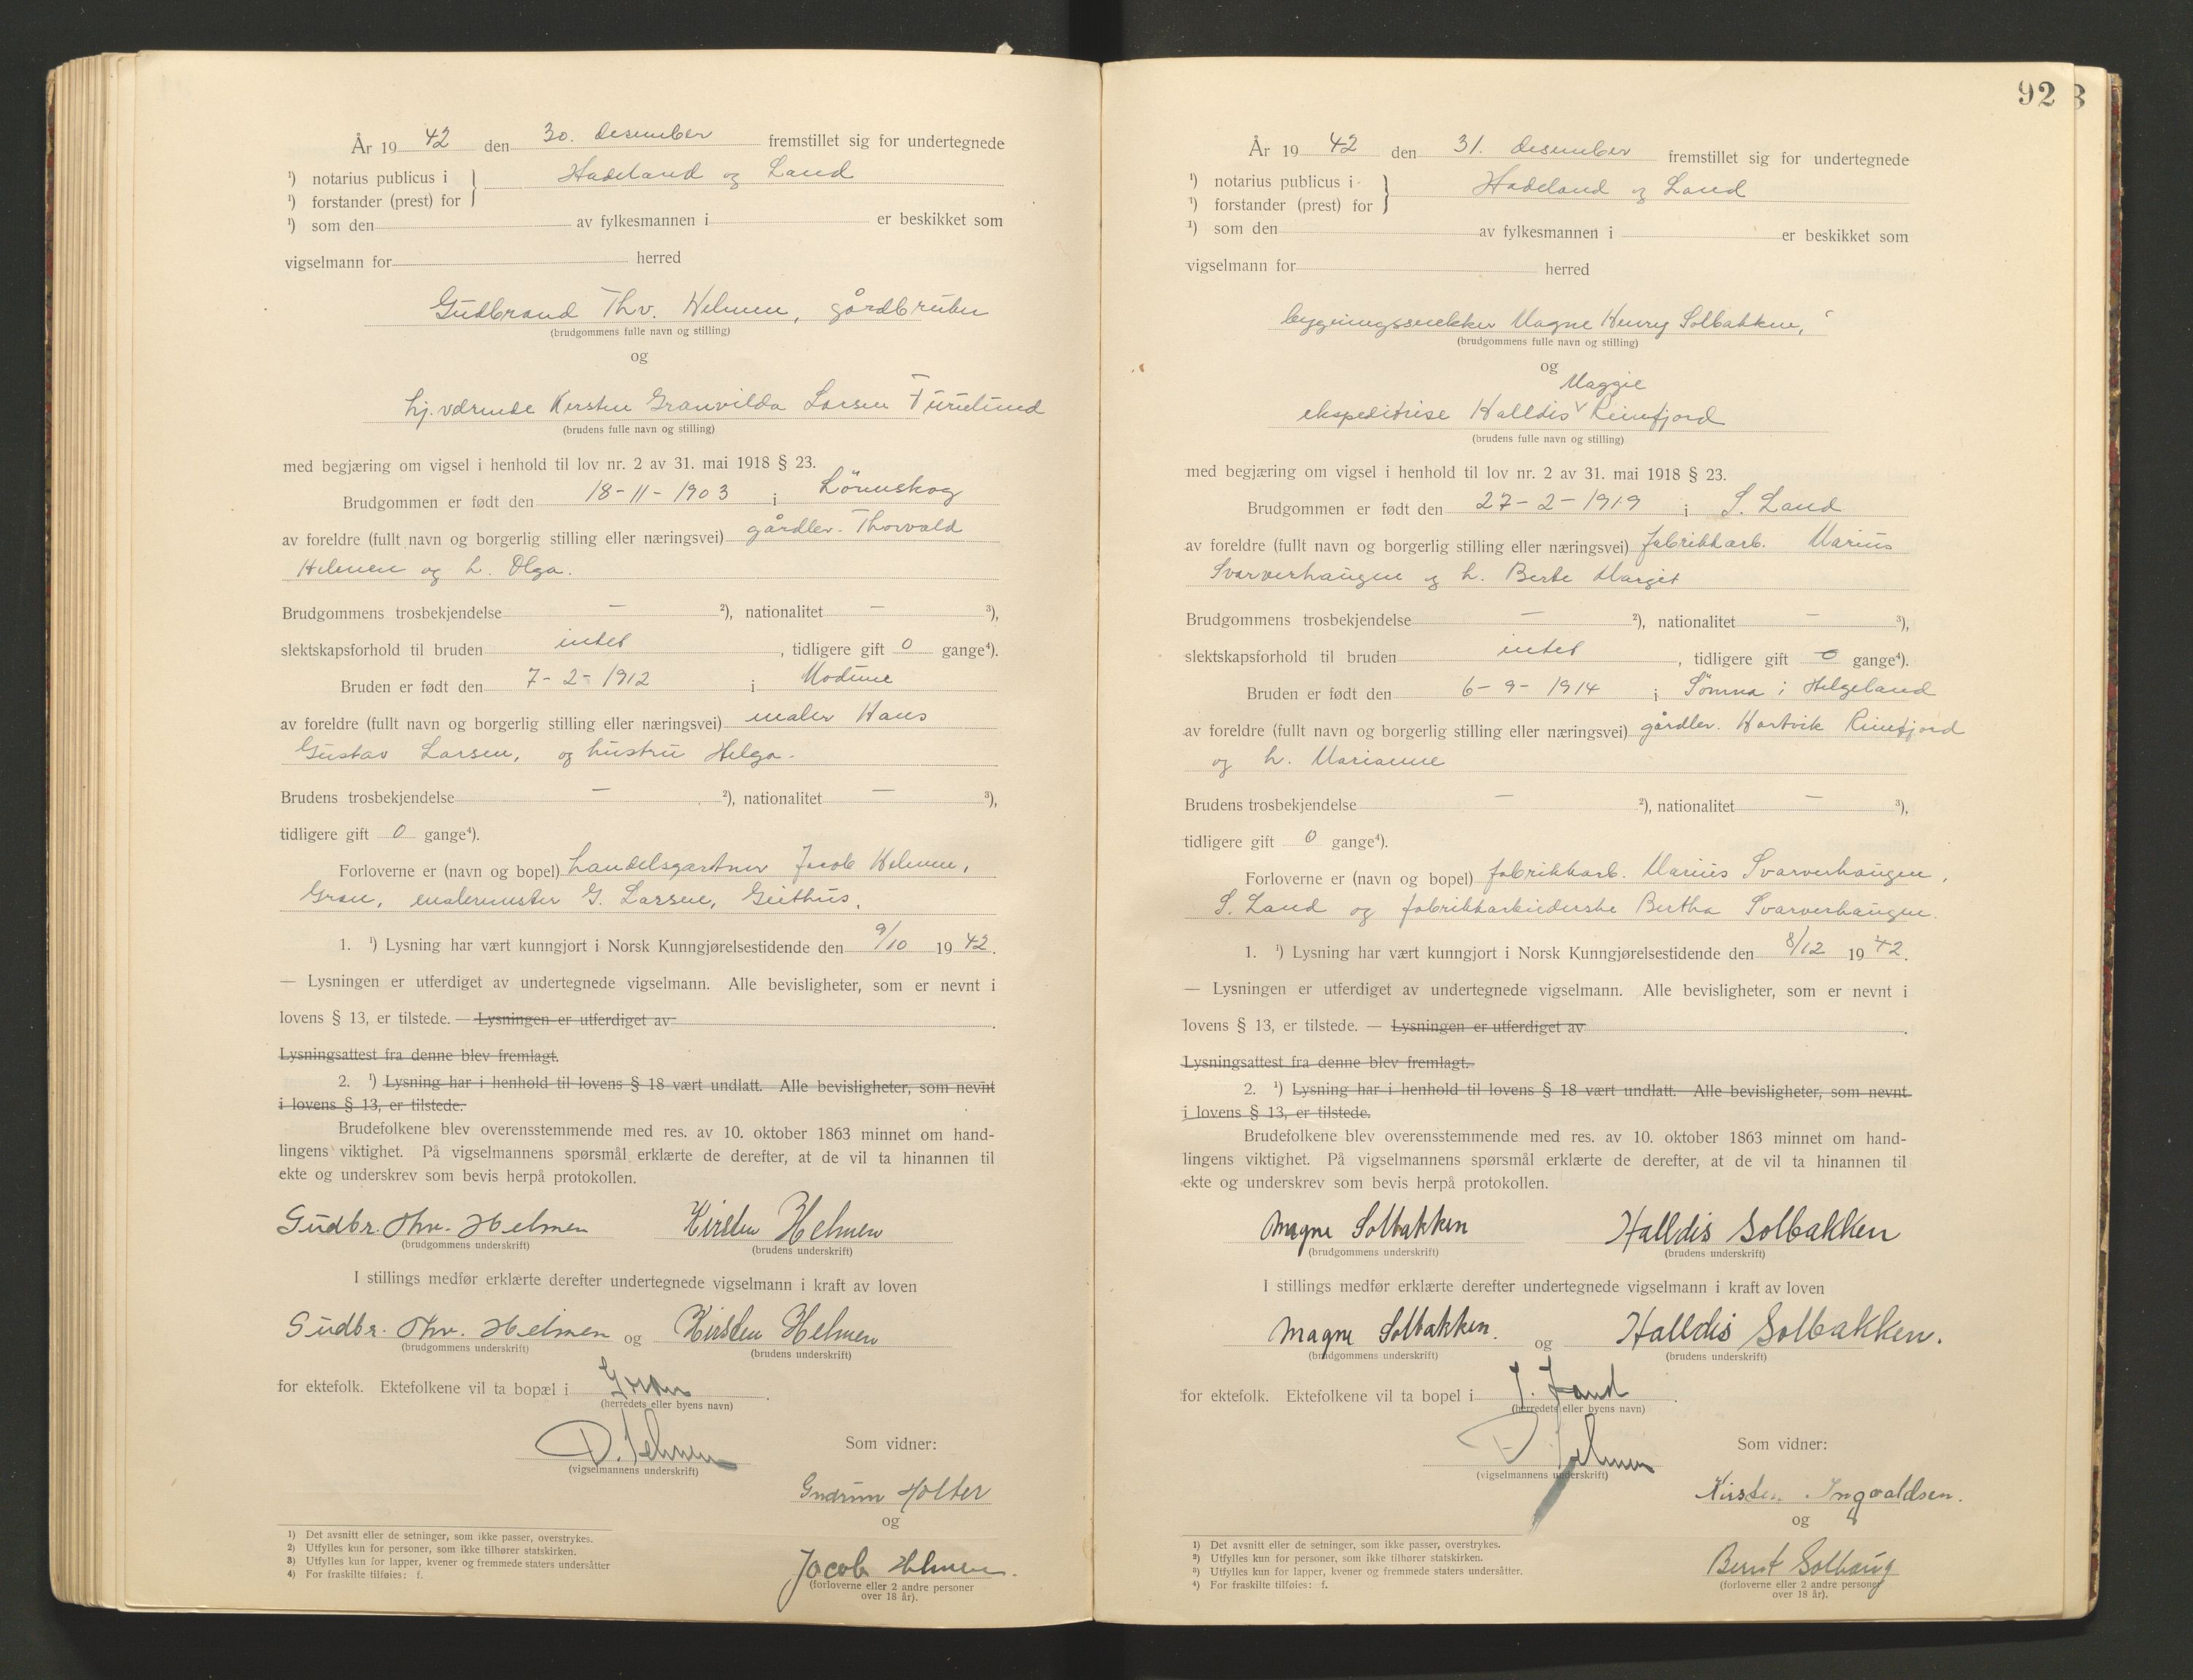 År 19 42 den 30. desember fremstillet sig for undertegnede
¹) notarius publicus i } Hadeland og Land
¹) forstander (prest) for
¹) som den av fylkesmannen i er beskikket som
vigselmann for herred
Gudbrand Thv. Helmen, gårdbruker
(brudgommens fulle navn og stilling)
og
hj.værende Kirsten Granvilda Larsen Furulund
(brudens fulle navn og stilling)
med begjæring om vigsel i henhold til lov nr. 2 av 31. mai 1918 § 23.
Brudgommen er født den 18-11-1903 i Lörenskog
av foreldre (fullt navn og borgerlig stilling eller næringsvei) gårdbr. Thorvald
Helmen og h. Olga.
Brudgommens trosbekjendelse — ²), nationalitet — ³),
slektskapsforhold til bruden intet, tidligere gift 0 gange⁴).
Bruden er født den 7-2-1912 i Modum
av foreldre (fullt navn og borgerlig stilling eller næringsvei) maler Hans
Gustav Larsen, og hustru Helga.
Brudens trosbekjendelse — ²), nationalitet — ³),
tidligere gift 0 gange⁴).
Forloverne er (navn og bopel) handelsgartner Jacob Helmen,
Gran, malermester G. Larsen, Geithus.
1. ¹) Lysning har vært kunngjort i Norsk Kunngjørelsestidende den 9/10 19 42.
— Lysningen er utferdiget av undertegnede vigselmann. Alle bevisligheter, som er nevnt i
lovens § 13, er tilstede. — Lysningen er utferdiget av
Lysningsattest fra denne blev fremlagt.
2. ¹) Lysning har i henhold til lovens § 18 vært undlatt. Alle bevisligheter, som nevnt
i lovens § 13, er tilstede.
Brudefolkene blev overensstemmende med res. av 10. oktober 1863 minnet om hand-
lingens viktighet. På vigselmannens spørsmål erklærte de derefter, at de vil ta hinannen til
ekte og underskrev som bevis herpå protokollen.
Gudbr. Thv. Helmen Kirsten Helmen
(brudgommens underskrift) (brudens underskrift)
I stillings medfør erklærte derefter undertegnede vigselmann i kraft av loven
Gudbr. Thv. Helmen og Kirsten Helmen
(brudgommens underskrift) (brudens underskrift)
for ektefolk. Ektefolkene vil ta bopæl i Gran.
(herredets eller byens navn)
D. Helmen Som vidner:
(vigselmannens underskrift)
Gudrun Holter
og
Jacob Helmen.
(forloverne eller 2 andre personer
over 18 år).
1) Det avsnitt eller de setninger, som ikke passer, overstrykes.
2) Utfylles kun for personer, som ikke tilhører statskirken.
3) Utfylles kun for lapper, kvener og fremmede staters undersåtter
4) For fraskilte tilføies: f.
92
År 19 42 den 31. desember fremstillet sig for undertegnede
¹) notarius publicus i } Hadeland og Land
¹) forstander (prest) for
¹) som den av fylkesmannen i er beskikket som
vigselmann for herred
bygningssnekker Magne Henry Solbakken,
(brudgommens fulle navn og stilling)
og
Maggie
ekspeditrise Halldis Reinfjord
(brudens fulle navn og stilling)
med begjæring om vigsel i henhold til lov nr. 2 av 31. mai 1918 § 23.
Brudgommen er født den 27-2-1919 i S. Land
av foreldre (fullt navn og borgerlig stilling eller næringsvei) fabrikkarb. Marius
Svarverhaugen og h. Berte Marget
Brudgommens trosbekjendelse — ²), nationalitet — ³),
slektskapsforhold til bruden intet, tidligere gift 0 gange⁴).
Bruden er født den 6-9-1914 i Sömna i Helgeland
av foreldre (fullt navn og borgerlig stilling eller næringsvei) gårdbr. Hartvik Reinfjord
og h. Marianne
Brudens trosbekjendelse — ²), nationalitet — ³),
tidligere gift 0 gange⁴).
Forloverne er (navn og bopel) fabrikkarb. Marius Svarverhaugen,
S. Land og fabrikkarbiederske Bertha Svarverhaugen.
1. ¹) Lysning har vært kunngjort i Norsk Kunngjørelsestidende den 8/12 19 42.
— Lysningen er utferdiget av undertegnede vigselmann. Alle bevisligheter, som er nevnt i
lovens § 13, er tilstede. — Lysningen er utferdiget av
Lysningsattest fra denne blev fremlagt.
2. ¹) Lysning har i henhold til lovens § 18 vært undlatt. Alle bevisligheter, som nevnt
i lovens § 13, er tilstede.
Brudefolkene blev overensstemmende med res. av 10. oktober 1863 minnet om hand-
lingens viktighet. På vigselmannens spørsmål erklærte de derefter, at de vil ta hinannen til
ekte og underskrev som bevis herpå protokollen.
Magne Solbakken Halldis Solbakken
(brudgommens underskrift) (brudens underskrift)
I stillings medfør erklærte derefter undertegnede vigselmann i kraft av loven
Magne Solbakken. og Halldis Solbakken.
(brudgommens underskrift) (brudens underskrift)
for ektefolk. Ektefolkene vil ta bopel i S. Land.
(herredets eller byens navn)
D. Helmen Som vidner:
(vigselmannens underskrift)
Kirsten Ingvaldsen.
og
Bernt Solhaug
(forloverne eller 2 andre personer
over 18 år).
1) Det avsnitt eller de setninger, som ikke passer, overstrykes.
2) Utfylles kun for personer, som ikke tilhører statskirken.
3) Utfylles kun for lapper, kvener og fremmede staters undersåtter.
4) For fraskilte tilføies: f.